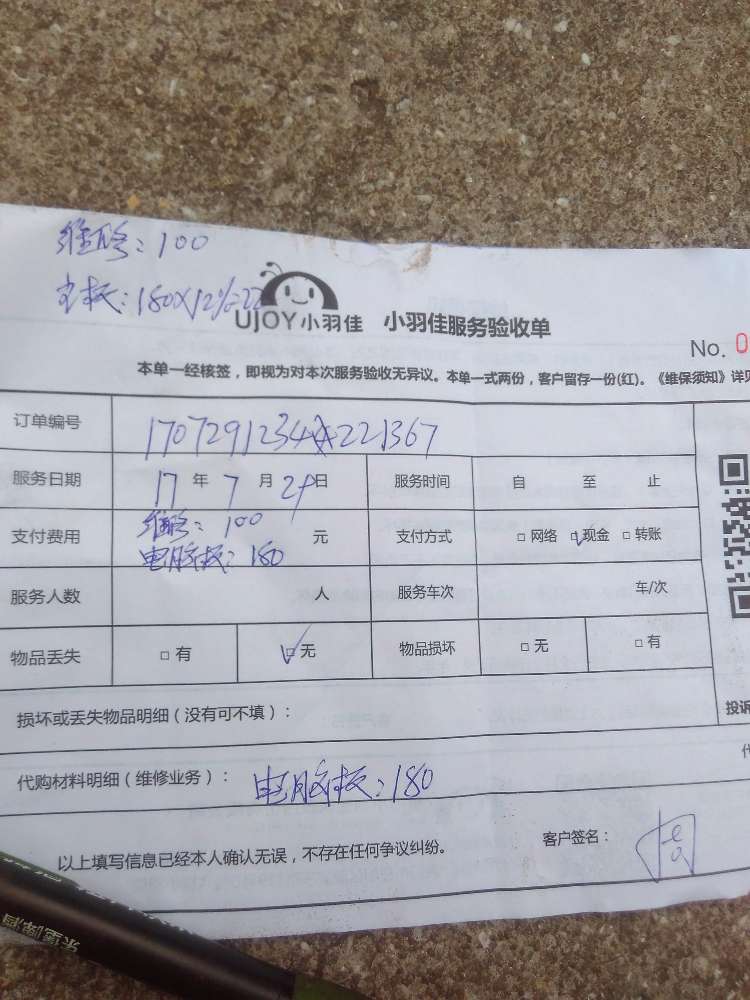 维修：100
主板：180×12%=22
UJOY小羽佳 小羽佳服务验收单
No. 0
本单一经核签，即视为对本次服务验收无异议。本单一式两份，客户留存一份(红)。《维保须知》详见
订单编号
服务日期 17 年 7 月 29日 服务时间 自 至 止
支付费用 维修：100 元 支付方式 □ 网络 ☑现金 □ 转账
电脑板：180
服务人数 人 服务车次 车/次
物品丢失 □ 有 ☑无 物品损坏 □ 无 □ 有
损坏或丢失物品明细（没有可不填）：
投诉
代购材料明细（维修业务）： 电脑板：180
代
以上填写信息已经本人确认无误，不存在任何争议纠纷。 客户签名：